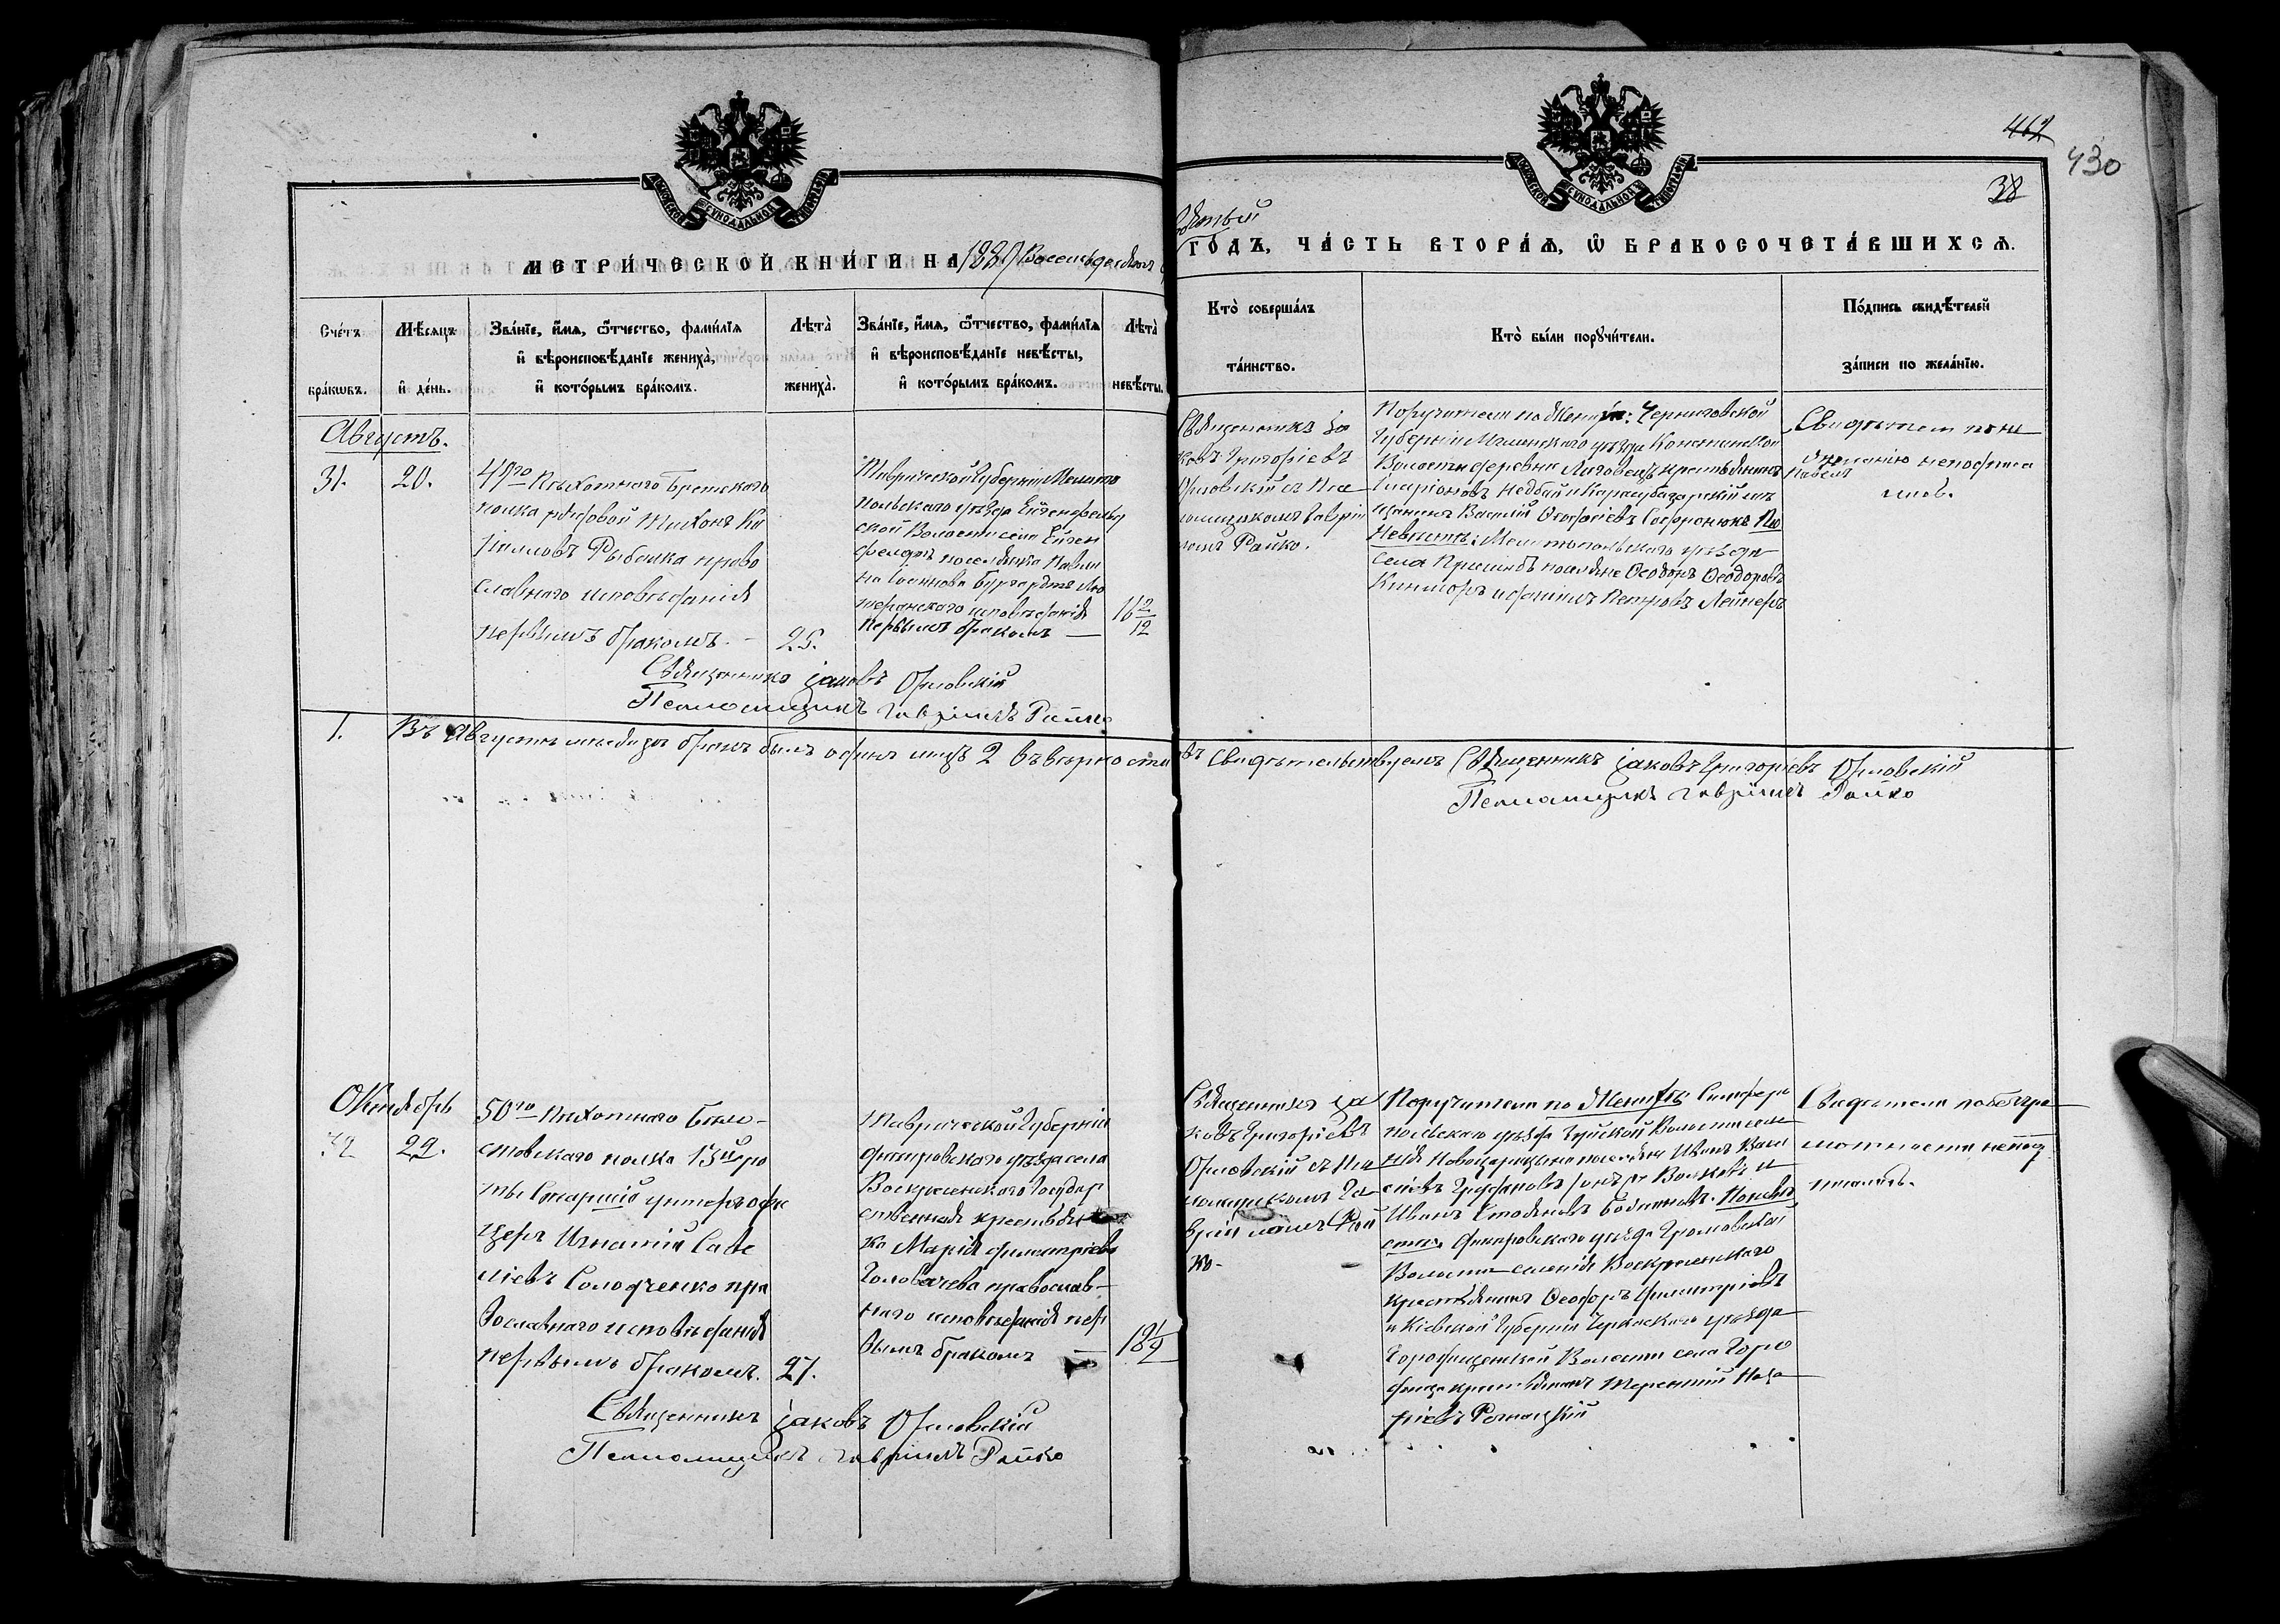 462
430
38
МЕТРИ́ЧЕСКОЙ КНИ́ГИ НА 1889 Восемьдесятъ
девятый
ГО́ДЪ, ЧА́СТЬ ВТОРА́Я, Ѡ БРАКОСОЧЕТА́ВШИХСЯ.
Сче́тъ бра́кωвъ.
Мѣ́сяцъ и де́нь.
Зва́нїе, и́мя, ѻ́тчество, фами́лїя и вѣроисповѣ́данїе жениха̀, и кото́рымъ бра́комъ.
Лѣта̀ жениха̀.
Зва́нїе, и́мя, ѻ́тчество, фами́лїя и вѣроисповѣ́данїе невѣ́сты, и кото́рымъ бра́комъ.
Лѣта̀ невѣ́сты.
Кто̀ соверша́лъ та́инство.
Кто̀ бы́ли порꙋчи́тели.
По́дпись свидѣ́телей за́писи по жела́нїю.
Августъ.
31.
20.
49го Пѣхотнаго Брестскаго
полка рядовой Тихонъ Ки
рилловъ Рыбалка право
славнаго исповѣданія
первымъ бракомъ.
25.
Таврической Губерніи Мелито
польскаго уѣзда Ейгенфельд
ской Волости села Ейген
фелдъ поселянка Павли
на Іосифова Бургардтъ Лю
теранскаго исповѣданія
первымъ бракомъ —
16 2/12
Священникъ Іа
ковъ Григоріевъ
Орловскій съ Пса
ломщикомъ Гаврі
иломъ Райко.
Поручители по Женихѣ: Черниговской
Губерніи Мглинскаго уѣзда
Волости деревни крестьянинъ
Иларіоновъ Недбай и Карасубазарскій мѣ
щанинъ Василій Ѳеофаніевъ Софронюкъ По
Невѣстѣ: Мелитопольскаго уѣзда
села Пришибъ поселяне Ѳеодоръ Ѳеодоровъ
и Даніилъ Петровъ Лейнеръ
Свидѣтели по не
желанію неподписа
лись.
Павелъ
Священникъ Іаковъ Орловскій
Псаломщикъ Гавріилъ Райко
1. Въ Августѣ мѣсяцѣ бракъ былъ одинъ лицъ 2 въ вѣрности
свидѣтельствуемъ Священникъ Іаковъ Григоріевъ Орловскій
Псаломщикъ Гавріилъ Райко
Октябрь
32
22.
50го Пѣхотнаго Бѣло-
стокскаго полка 13й ро
ты Старшій унтеръ офи
церъ Игнатій Саве
ліевъ Солодченко пра
вославнаго исповѣданія
первымъ бракомъ.
27.
Таврической Губерніи
Днепровскаго уѣзда села
Воскресенскаго Государ
ственная крестьян
ка Марія Димитріева
Головачева православ-
наго исповѣданія пер
вымъ бракомъ —
18 1/2
Священникъ Іа
ковъ Григоріевъ
Орловскій съ Пса
ломщикомъ Га
вріиломъ Рай
ко.
Поручители по Женихѣ: Симферо
польскаго уѣзда Волости селе
нія Новоцарицыно поселяне Иванъ Васи
ліевъ и
Иванъ Стояновъ По невѣ
стѣ: Днепровскаго уѣзда Громовской
Волости селенія Воскресенскаго
крестьянинъ Ѳеодоръ Димитріевъ
и Кіевской Губерніи Черкасскаго уѣзда
Городищенской Волости села Горо
дища крестьянинъ Терентій Наза
ріевъ
Свидѣтели по безгра
мотности непод
писались.
Священникъ Іаковъ Орловскій
Псаломщикъ Гавріилъ Райко